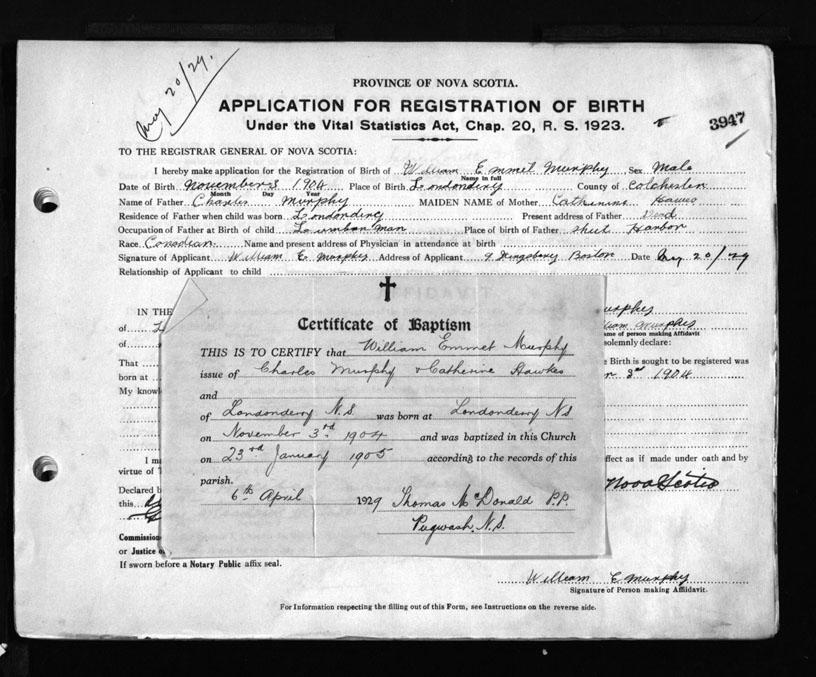 May 20/29.
PROVINCE OF NOVA SCOTIA.
APPLICATION FOR REGISTRATION OF BIRTH
Under the Vital Statistics Act, Chap. 20, R. S. 1923.
3947
TO THE REGISTRAR GENERAL OF NOVA SCOTIA:
I hereby make application for the Registration of Birth of William Emmet Murphy Sex Male
Name in full
Date of Birth November 3 1904 Place of Birth Londonderry County of Colchester
Month Day Year
Name of Father Charles Murphy MAIDEN NAME of Mother Catherine
Residence of Father when child was born Londonderry Present address of Father Dead
Occupation of Father at Birth of child Lumberman Place of birth of Father Sheet Harbor
Race Canadian Name and present address of Physician in attendance at birth
Signature of Applicant William E Murphy Address of Applicant 9 Kingsbury Boston Date May 20/29
Relationship of Applicant to child
IN THE
of
of
That
born at
My knowl
I ma
virtue of T
Declared b
this
Commission
or Justice o
If sworn before a Notary Public affix seal.
Certificate of Baptism
THIS IS TO CERTIFY that William Emmet Murphy
issue of Charles Murphy & Catherine Hawkes
and
of Londonderry N.S. was born at Londonderry NS
on November 3rd 1904 and was baptized in this Church
on 23rd January 1905 according to the records of this
parish.
6th April 1929 Thomas McDonald P.P.
Pugwash, N.S.
urphy
liam Murphy
me of person making Affidavit
solemnly declare:
e Birth is sought to be registered was
r 3rd 1904
ffect as if made under oath and by
Nova Scotia
William E Murphy
Signature of Person making Affidavit.
For Information respecting the filling out of this Form, see Instructions on the reverse side.